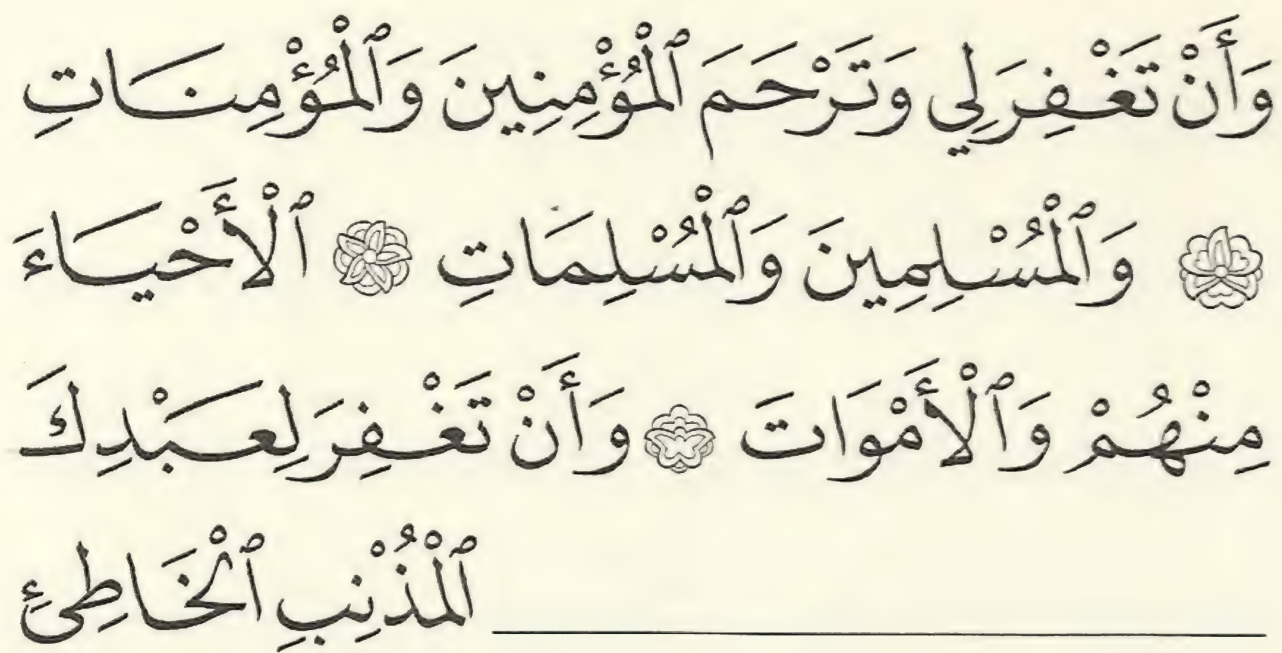 وَأَنْ تَغْفِرَ لِي وَتَرْحَمَ ٱلْمُؤْمِنِينَ وَٱلْمُؤْمِنَاتِ
وَٱلْمُسْلِمِينَ وَٱلْمُسْلِمَاتِ ٱلْأَحْيَاءَ
مِنْهُمْ وَٱلْأَمْوَاتَ وَأَنْ تَغْفِرَ لِعَبْدِكَ
ٱلْمُذْنِبِ ٱلْخَاطِئِ